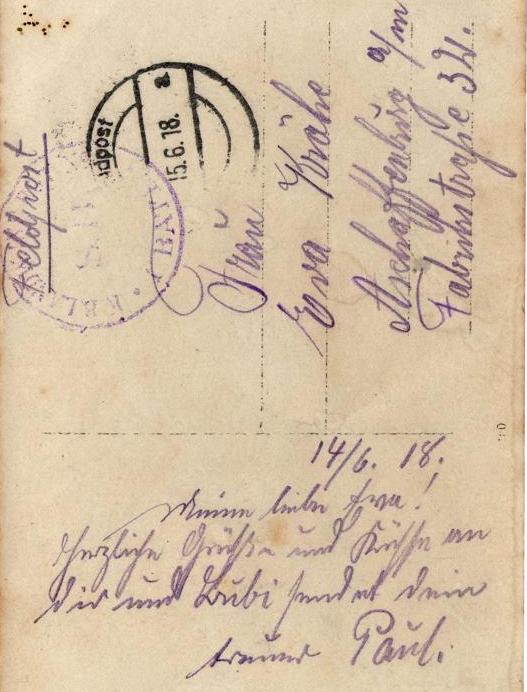 Feldpost
Feldpost
15.6.18. a
BAT
Frau
Eva Krähe
Aschaffenburg a/m
Fabrikstraße 32.
14/6. 18.
Meine liebe Eva!
Herzliche Grüße und Küsse an
dir und Bubi sendet dein
treuer Paul.